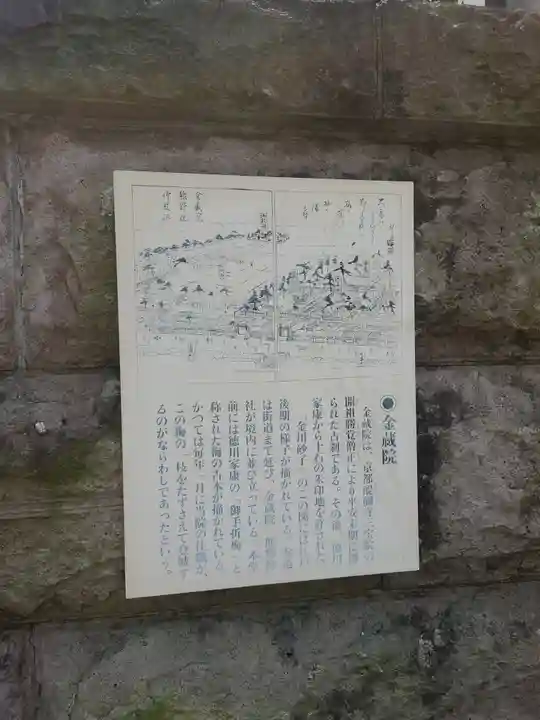 金蔵院
金蔵院は、京都醍醐寺三宝院の
開祖勝覚僧正により平安末期に創
られた古刹である。その後、徳川
家康から十石の朱印地を許された。
「金川砂子」のこの図には江戸
後期の様子が描かれている。参道
は街道まで延び、金蔵院・熊野神
社が境内に並び立っている。本堂
前には徳川家康の「御手折梅」と
称された梅の古木が描かれている。
かつては毎年一月に当院の住職が、
この梅の一枝をたずさえて登城す
るのがならわしであったという。
金蔵院
熊野社